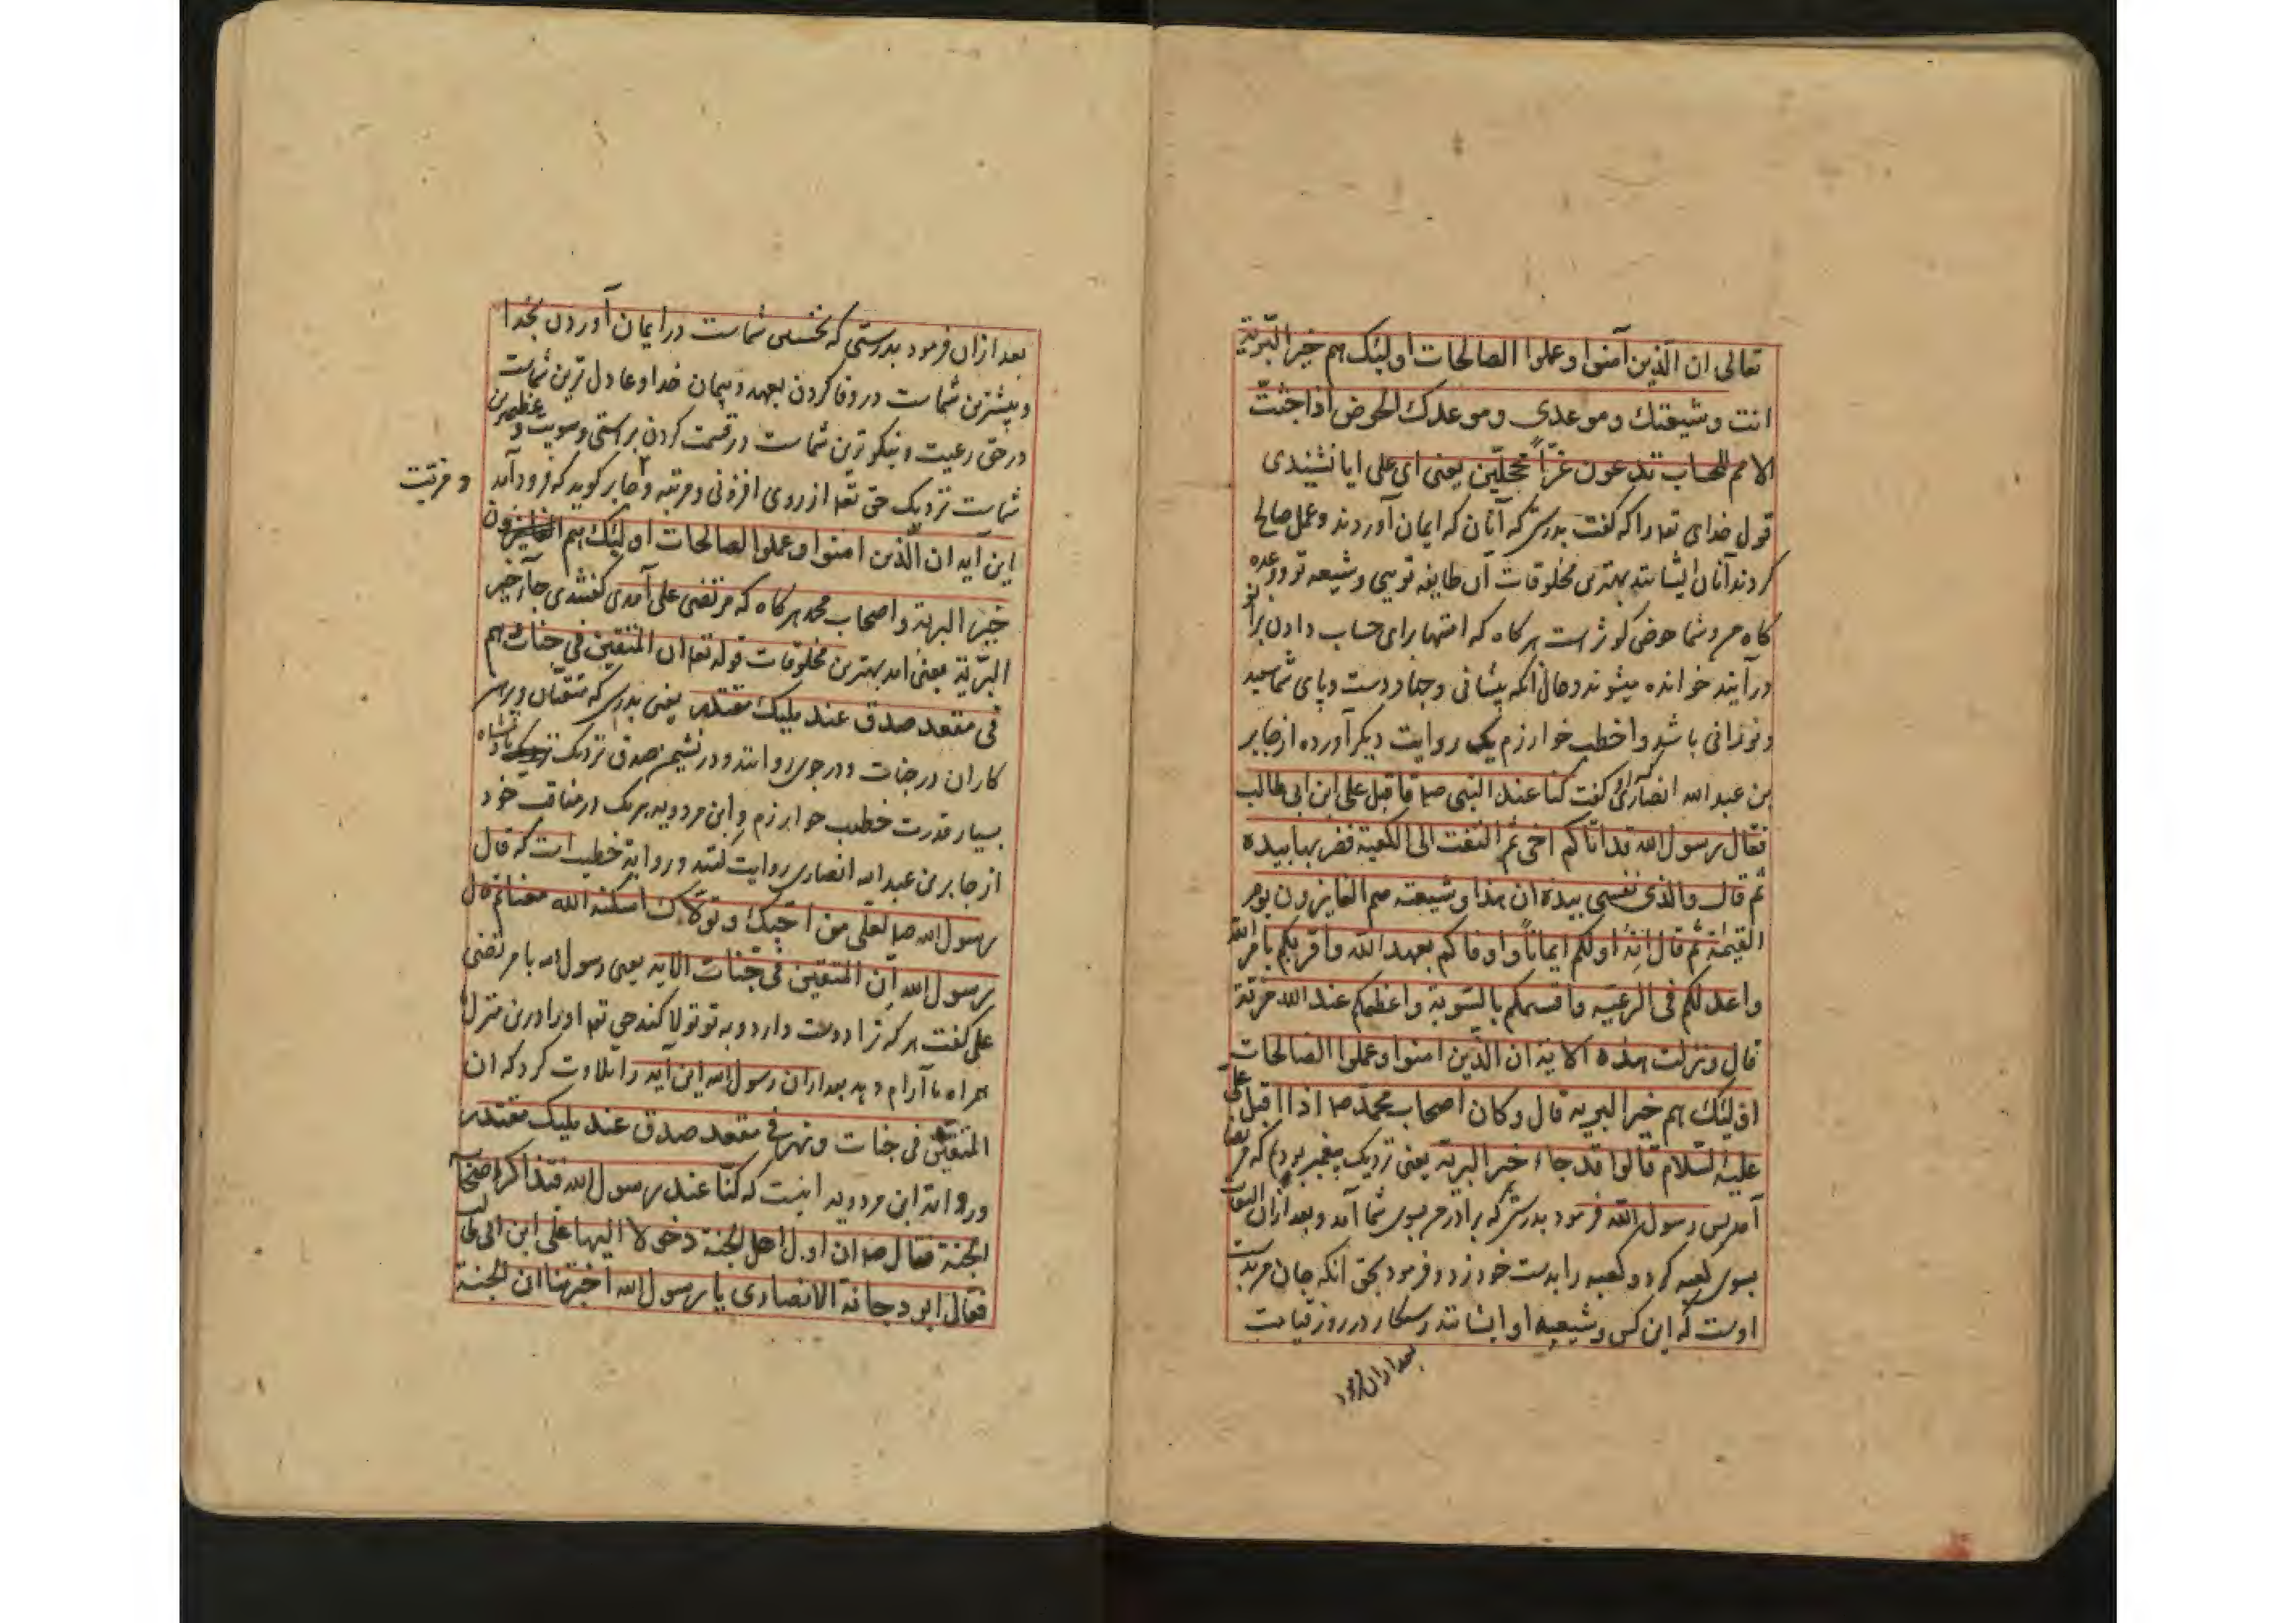 تعالی ان الّذین آمنوا و عملوا الصالحات اولئک هم خیر البّریّة
انت و شیعتك و موعدی و موعدك الحوض اذا جئت
الامم للحساب تدعون غرّاً محجلّین یعنی ای علی ایا نشنیدی
قول خدای تعا را که کفت بدرستی که آنان که ایمان آوردند و عمل صالح
کردند آنان ایشانند بهترین مخلوقات آن طایفه تویی و شیعه تو و وعده
کاه من و شما حوض کوثر است هرکاه که امتها برای حساب دادن بزانو
درآیند خوانده میشوند و حال آنکه پیشانی و دست و پای شما سفید
و نورانی باشد و اخطب خوارزم یک روایت دیگر آورده از جابر
بن عبد الله انصاری که کفت کنا عند النبی صا فاقبل علی ابن ابی طالب
فقال رسول الله قد اتاکم اخی ثم التفت الی الکعبة فضربها بیده
ثم قال والذی نفسی بیده ان هذا و شیعته هم الفایزون یوم
القیمة ثم قال انه اولکم ایماناً و اوفاکم بعهد الله و اقربکم بامر الله
واعدلکم فی الرعیّه و اقسمکم بالسّویة و اعظمکم عند الله مزیّة
قال و نزلت هذه الایة ان الذّین امنوا و عملوا الصالحات
اولئک هم خیر البریه قال و کان اصحاب محمّد صا اذا اقبل علی
علیه السّلام قالوا قد جاء خیر البریه یعنی نزدیک پیغمبر بودم که مرتضا
آمد پس رسول الله فرمود بدرستی که برادرم بسوی شما آمد و بعد ازان التفات
بسوی کعبه کرد و کعبه را بدست خود زد و فرمود بحق آنکه جان من بدست
اوست که این کس و شیعیه او ایشانند رستکار در روز قیامت
بعد ازان فرمود
بعد ازان فرمود بدرستی که نخستین شماست در ایمان آوردن بخدا
و بیشترین شماست در وفا کردن بعهد و پیمان خدا و عادل ترین شماست
در حق رعیت و نیکوترین شماست در قسمت کردن براستی و سویت و عظیم‌ترین
شماست نزدیک حق تعا از روی افزونی و مرتبه و جابر کوید که فرود آمد
و مزیّت
این آیه ان الّذین امنوا و عملوا الصالحات اولئک هم
خیر البریّة و اصحاب محمد هرکاه که مرتضی علی آمدی کفتندی جآء خیر
البرّیّة یعنی امد بهترین مخلوقات قوله تعا ان المتقین فی جنات و نهر
فی مقعد صدق عند ملیك مقتدر یعنی بدرستی که متقیان و پرهیز
کاران در جنات و در جوی روانند و در نشیمن صدق نزدیک پادشاه
بسیار قدرت خطیب خوارزم و ابن مردویه هریک در مناقب خود
از جابر بن عبد الله انصاری روایت کنند و روایة خطیب است که قال
رسول الله صا لعلی من احبّك و تولّاك اسکنه الله معنا ثم قال
رسول الله ان المتقین فی جنّات الایه یعنی رسول الله با مرتضی
علی کفت هرکه ترا دوست دارد و به تو تولا کند حق تعا او را درین منزل
همراه ما آرام دهد بعد ازان رسول الله این آیه را تلاوت کرد که ان
المتقین فی جنات و نهر فی مقعد صدق عند ملیك مقتدر
و روایة ابن مردویه اینست که کنّا عند رسول الله فتذاکر اصحابه
الجنة فقال صا ان اول اهل الجنة دخولا الیها علی ابن ابی طالب
فقال ابو دجانة الانصاری یا رسول الله اخبرتنا ان الجنة